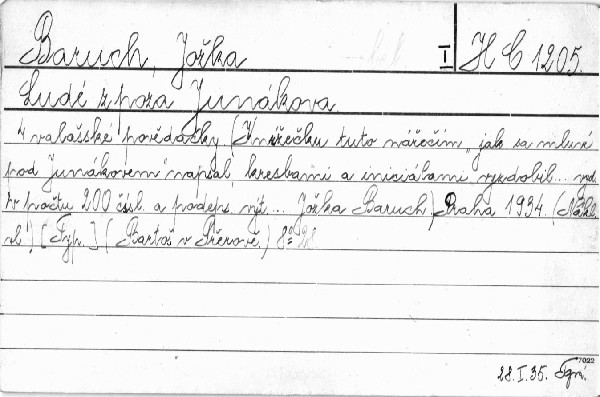 Baruch, Jožka I H C 1205.
Ludé z poza Junákova.
4 valašské povědačky
tuto nářečím, jak sa mluví
pod Junákovem" napsal, kresbami a iniciálami vyzdobil...
v počtu 200 čísl. a podeps. výt... Jožka Baruch.) Praha 1934. (Nákl.
vl.) [Typ.] (Bartoš v Přerově.) 8°
7022
28.I.35.